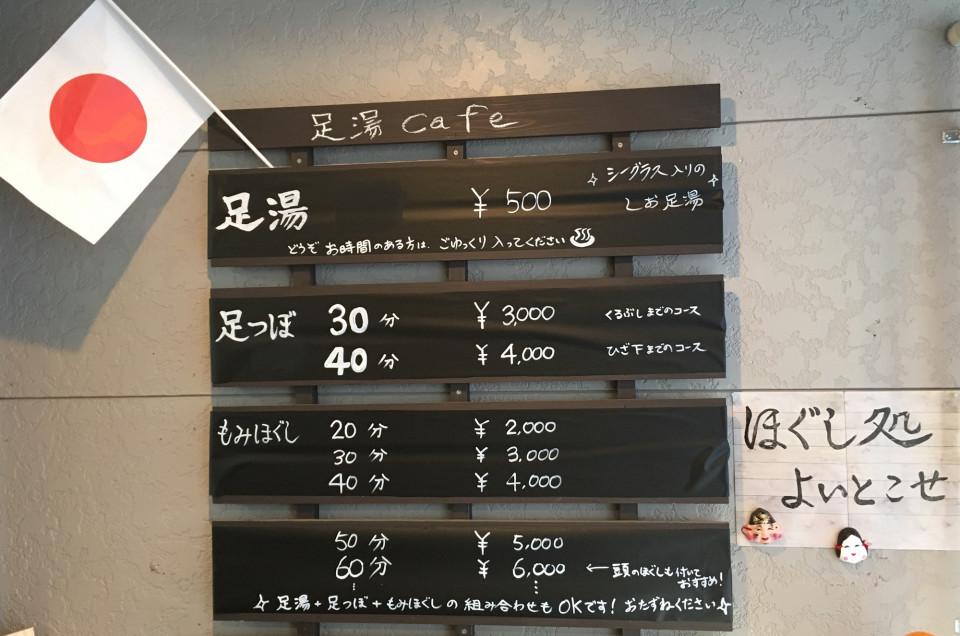 足湯 cafe
足湯 ¥500 ☆シーグラス入りの☆
しお足湯
どうぞ お時間のある方は、ごゆっくり 入ってください♨
足つぼ 30分 ¥3,000 くるぶしまでのコース
40分 ¥4,000 ひざ下までのコース
もみほぐし 20分 ¥2,000
30分 ¥3,000
40分 ¥4,000
50分 ¥5,000
60分 ¥6,000 ←頭のほぐしも付いて
おすすめ!
☆足湯+足つぼ+もみほぐしの組み合わせもOKです!おたずねください☆
ほぐし処
よいとこせ